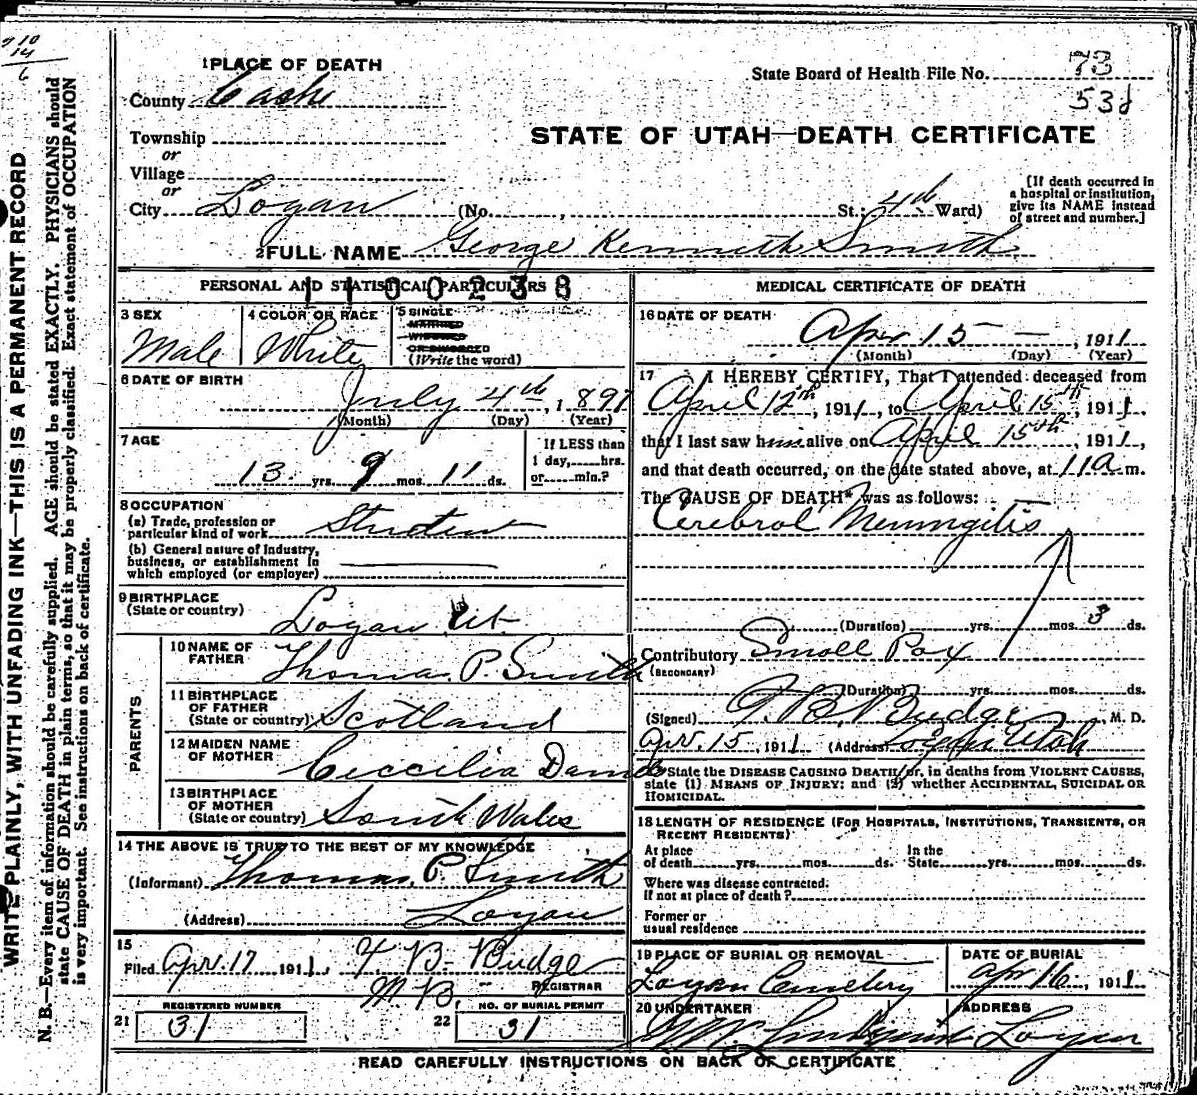 10
14
6
WRITE PLAINLY, WITH UNFADING INK—THIS IS A PERMANENT RECORD
N. B.—Every item of information should be carefully supplied. AGE should be stated EXACTLY. PHYSICIANS should
state CAUSE OF DEATH in plain terms, so that it may be properly classified. Exact statement of OCCUPATION
is very important. See instructions on back of certificate.
1 PLACE OF DEATH
County Cache
Township
or
Village
or
City Logan
State Board of Health File No. 73
53d
STATE OF UTAH—DEATH CERTIFICATE
(No. , St.; 4th Ward)
[If death occurred in
a hospital or institution,
give its NAME instead
of street and number.]
2 FULL NAME George Kenneth Smith
PERSONAL AND STATISTICAL PARTICULARS
1100238
3 SEX
Male
4 COLOR OR RACE
White
5 SINGLE
MARRIED
WIDOWED
OR DIVORCED
(Write the word)
6 DATE OF BIRTH
July 4th, 1897
(Month) (Day) (Year)
7 AGE
13 yrs. 9 mos. 11 ds.
If LESS than
1 day, hrs.
or min.?
8 OCCUPATION
(a) Trade, profession or
particular kind of work Student
(b) General nature of Industry,
business, or establishment in
which employed (or employer)
9 BIRTHPLACE
(State or country) Logan Ut.
PARENTS
10 NAME OF
FATHER Thomas P. Smith
11 BIRTHPLACE
OF FATHER
(State or country) Scotland
12 MAIDEN NAME
OF MOTHER Ceccilia Daines
13 BIRTHPLACE
OF MOTHER
(State or country) South Wales
14 THE ABOVE IS TRUE TO THE BEST OF MY KNOWLEDGE
(Informant) Thomas P. Smith
(Address) Logan
15
Filed Apr. 17 1911. F B- Budge
M D. REGISTRAR
REGISTERED NUMBER
21 31
NO. OF BURIAL PERMIT
22 31
MEDICAL CERTIFICATE OF DEATH
16 DATE OF DEATH
Apr 15 — , 1911
(Month) (Day) (Year)
17 I HEREBY CERTIFY, That I attended deceased from
April 12th, 1911, to April 15th, 1911,
that I last saw him alive on April 15th, 1911,
and that death occurred, on the date stated above, at 11 a m.
The CAUSE OF DEATH* was as follows:
Cerebral Meningitis
(Duration) yrs. mos. 3 ds.
Contributory Small Pox
(SECONDARY)
(Duration) yrs. mos. ds.
(Signed) Budge, M. D.
Apr. 15, 1911 (Address) Logan Utah
State the DISEASE CAUSING DEATH, or, in deaths from VIOLENT CAUSES,
state (1) MEANS OF INJURY; and (2) whether ACCIDENTAL, SUICIDAL OR
HOMICIDAL.
18 LENGTH OF RESIDENCE (FOR HOSPITALS, INSTITUTIONS, TRANSIENTS, OR
RECENT RESIDENTS)
At place
of death yrs. mos. ds.
In the
State yrs. mos. ds.
Where was disease contracted.
If not at place of death?
Former or
usual residence
19 PLACE OF BURIAL OR REMOVAL
Logan Cemetery
DATE OF BURIAL
Apr 16, 1911
20 UNDERTAKER
ADDRESS
Logan
READ CAREFULLY INSTRUCTIONS ON BACK OF CERTIFICATE